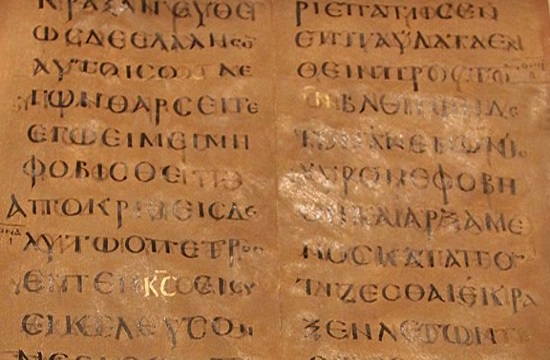 ΚΡΑΞΑΝΕΥΘΕ
ΩϹΔΕΕΛΑΛΗϹΕ
ΑΥΤΟΙϹΟ ΛΕ
ΓΩΝΘΑΡϹΕΙΤΕ
ΕΓΩΕΙΜΕΙΜΗ
ΦΟΒΙϹΘΕ
ΑΠΟΚΡΙΘΕΙϹΔΕ
ΑΥΤΩΟΠΕΤΡΟϹ
ΕΙϹΥ
ΕΙΚΕΛΕΥϹΟΝ
ΡΙΕΠΑΤΗϹΕΝ
ΕΠΙΤΑΥΔΑΤΑΕΛ
ΘΕΙΝΠΡΟϹΤΟ
ΙΝΒΛΕΠΩΝΔΕ
ΤΟΝΑΝΕΜΟΝΙ
ΧΥΡΟΝΕΦΟΒΗ
ΘΗΚΑΙΑΡΞΑΜΕ
ΝΟϹΚΑΤΑΠΟ
ΤΙΖΕϹΘΑΙΕΚΡΑ
ΞΕΝΛΕΓΩΝ